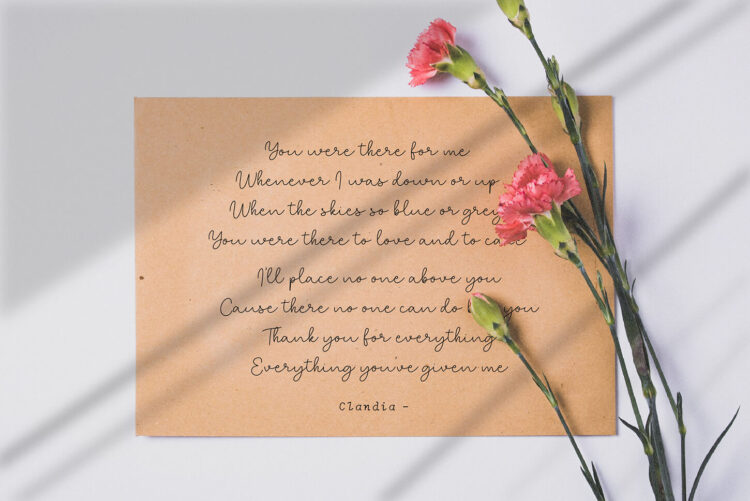 You were there for me
Whenever I was down or up
When the skies so blue or grey
You were there to love and to
I'll place no one above you
Cause there no one can do you
Thank you for everything
Everything you've given me
Clandia -